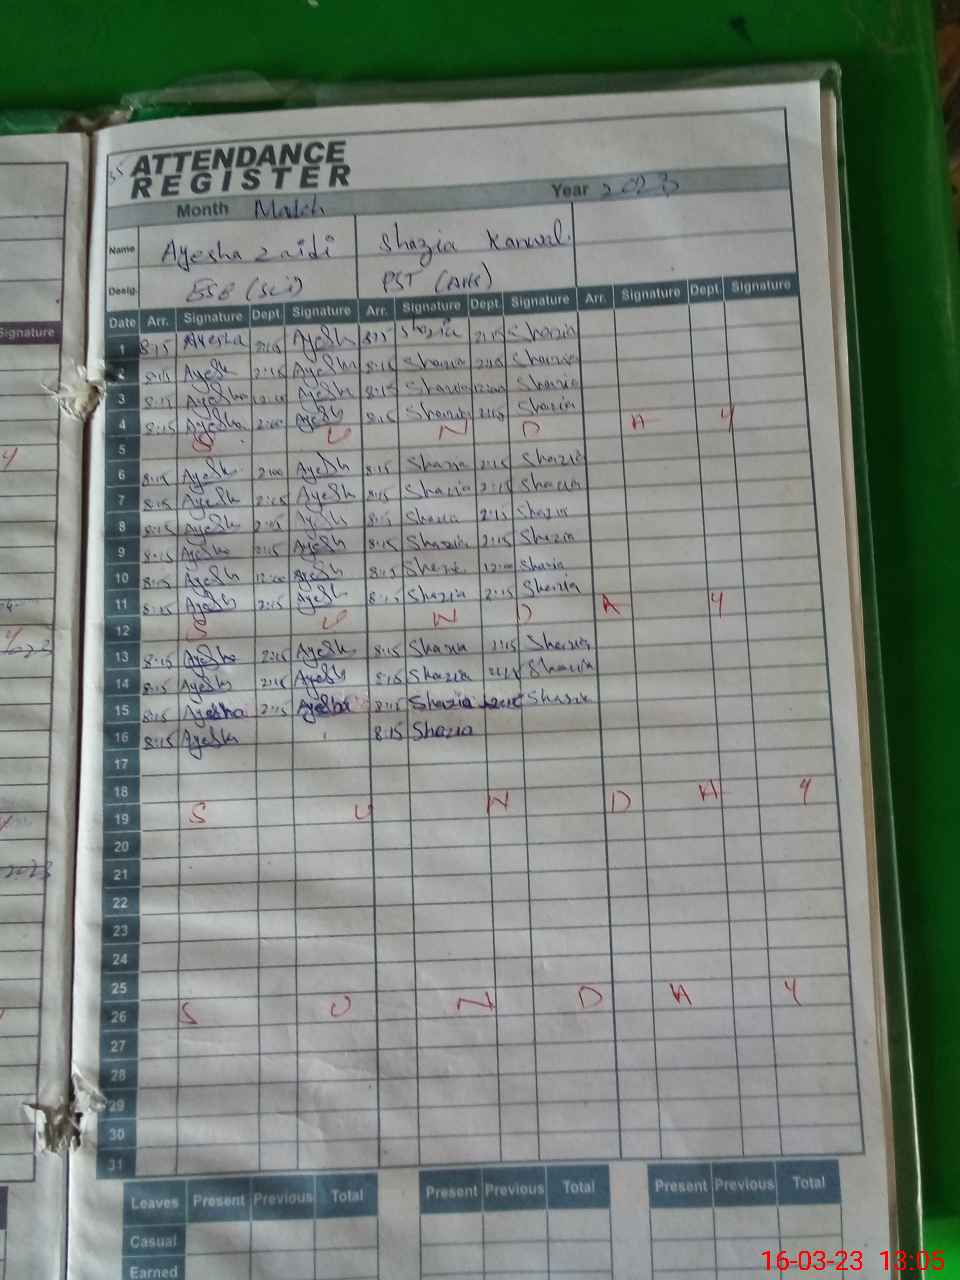 ATTENDANCE
REGISTER
Month March Year 2023
Name Ayesha Zaidi Shazia Kanwal.
Desig. ESE (Sci) PST (Arts)
Signature
Date Arr. Signature Dept Signature Arr. Signature Dept. Signature Arr. Signature Dept Signature
1 8:15 Ayesha 2:15 Ayesh 8:15 Shazia 2:15 Shazia
2 8:15 Ayesh 2:15 Ayesh 8:15 Shazia 2:15 Shazia
3 8:15 Ayesha 12:00 Ayesh 8:15 Shazia 12:00 Shazia
4 8:15 Ayesha 2:00 Ayesh 8:15 Shazia Shazia
5 S U N D A Y
6 8:15 Ayesh 2:00 Ayesh 8:15 Shazia 2:15 Shazia
7 8:15 Ayesh 2:15 Ayesh 8:15 Shazia 2:15 Shazia
8 8:15 Ayesh 2:15 Ayesh 8:15 Shazia 2:15 Shazia
9 8:15 Ayesha 2:15 Ayesh 8:15 Shazia 2:15 Shazia
10 8:15 Ayesh 12:00 Ayesh 8:15 12:00 Shazia
11 8:15 Ayesh 2:15 Ayesh 8:15 Shazia 2:15 Shazia
12 S U N D A Y
13 8:15 Ayesha 2:15 Ayesh 8:15 Shazia 2:15 Shazia
14 8:15 Ayesh 2:15 Ayesh 8:15 Shazia Shazia
15 8:15 Ayesha 2:15 Ayesha 8:15 Shazia Shazia
16 8:15 Ayesh 8:15 Shazia
17
18
19 S U N D A Y
20
21
22
23
24
25
26 S U N D A Y
27
28
29
30
31
Leaves Present Previous Total Present Previous Total Present Previous Total
Casual
Earned
16-03-23 13:05